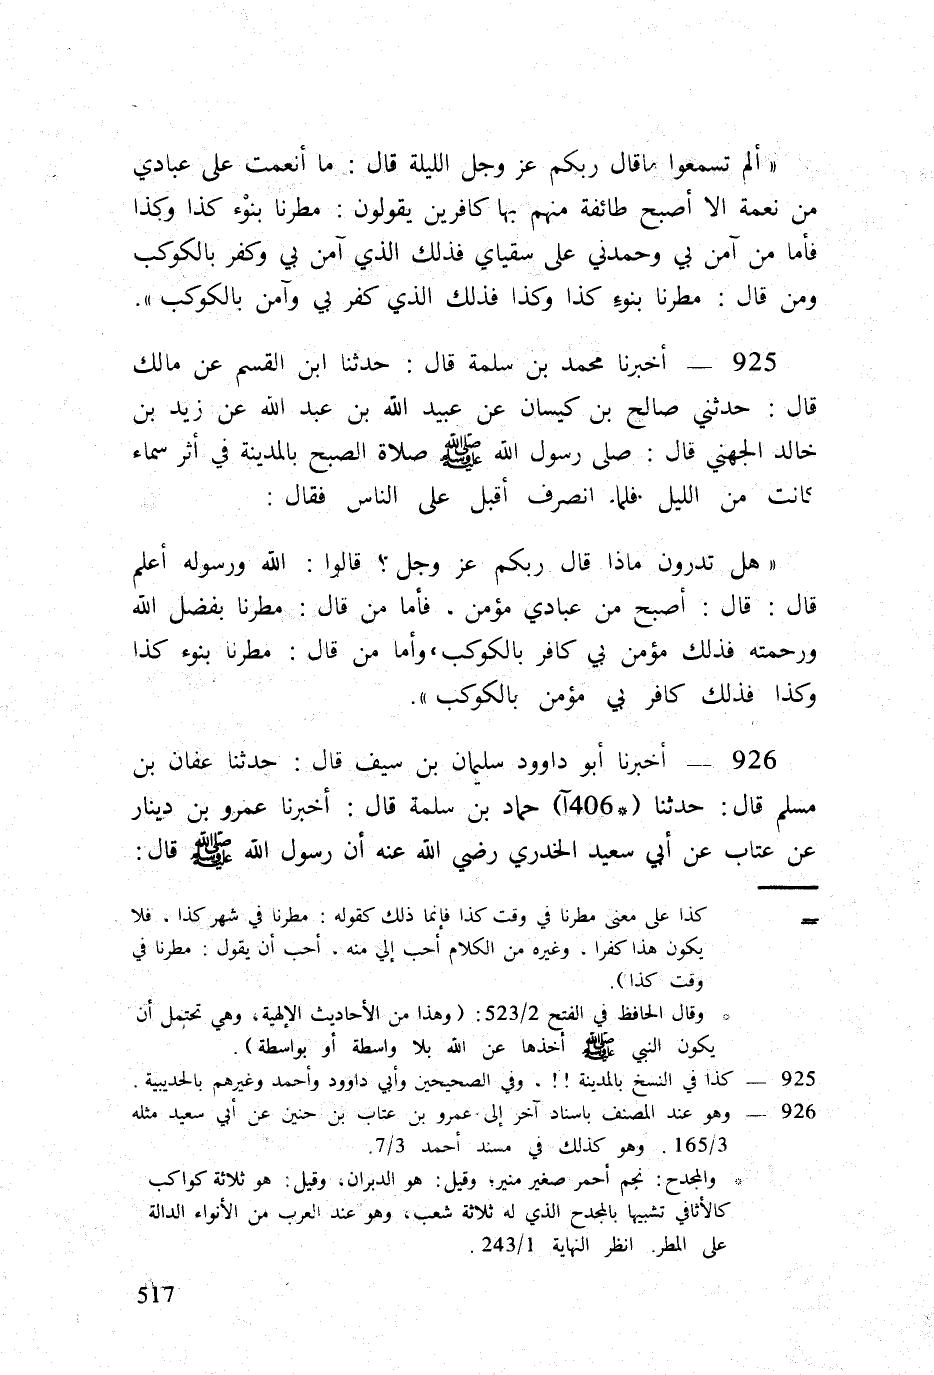 « ألم تسمعوا ماقال ربكم عز وجل الليلة قال : ما أنعمت على عبادي
من نعمة الا أصبح طائفة منهم بها كافرين يقولون : مطرنا بنوْء كذا وكذا
فأما من آمن بي وحمدني على سقياي فذلك الذي آمن بي وكفر بالكوكب
ومن قال : مطرنا بنوءِ كذا وكذا فذلك الذي كفر بي وآمن بالكوكب ».
925 — أخبرنا محمد بن سلمة قال : حدثنا ابن القسم عن مالك
قال : حدثني صالح بن كيسان عن عبيد الله بن عبد الله عن زيد بن
خالد الجهني قال : صلى رسول الله ﷺ صلاة الصبح بالمدينة في أثر سماء
كانت من الليل فلما انصرف أقبل على الناس فقال :
« هل تدرون ماذا قال ربكم عز وجل ؟ قالوا : الله ورسوله أعلم
قال : قال : أصبح من عبادي مؤمن . فأما من قال : مطرنا بفضل الله
ورحمته فذلك مؤمن بي كافر بالكوكب ، وأما من قال : مطرنا بنوء كذا
وكذا فذلك كافر بي مؤمن بالكوكب ».
926 — أخبرنا أبو داوود سليمان بن سيف قال : حدثنا عفان بن
مسلم قال : حدثنا (*406آ) حماد بن سلمة قال : أخبرنا عمرو بن دينار
عن عتاب عن أبي سعيد الخدري رضي الله عنه أن رسول الله ﷺ قال :
= كذا على معنى مطرنا في وقت كذا فإنما ذلك كقوله : مطرنا في شهر كذا . فلا
يكون هذا كفرا . وغيره من الكلام أحب إلي منه . أحب أن يقول : مطرنا في
وقت كذا ).
* وقال الحافظ في الفتح 523/2 : ( وهذا من الأحاديث الإلهية ، وهي تحتمل أن
يكون النبي ﷺ أخذها عن الله بلا واسطة أو بواسطة ) .
925 — كذا في النسخ بالمدينة !! . وفي الصحيحين وأبي داوود وأحمد وغيرهم بالحديبية .
926 — وهو عند المصنف باسناد آخر إلى عمرو بن عتاب بن حنين عن أبي سعيد مثله
165/3 . وهو كذلك في مسند أحمد 7/3.
* والمجدح : نجم أحمر صغير منير ؛ وقيل : هو الدبران ، وقيل : هو ثلاثة كواكب
كالأثافي تشبيها بالمجدح الذي له ثلاثة شعب ، وهو عند العرب من الأنواء الدالة
على المطر. انظر النهاية 243/1 .
517